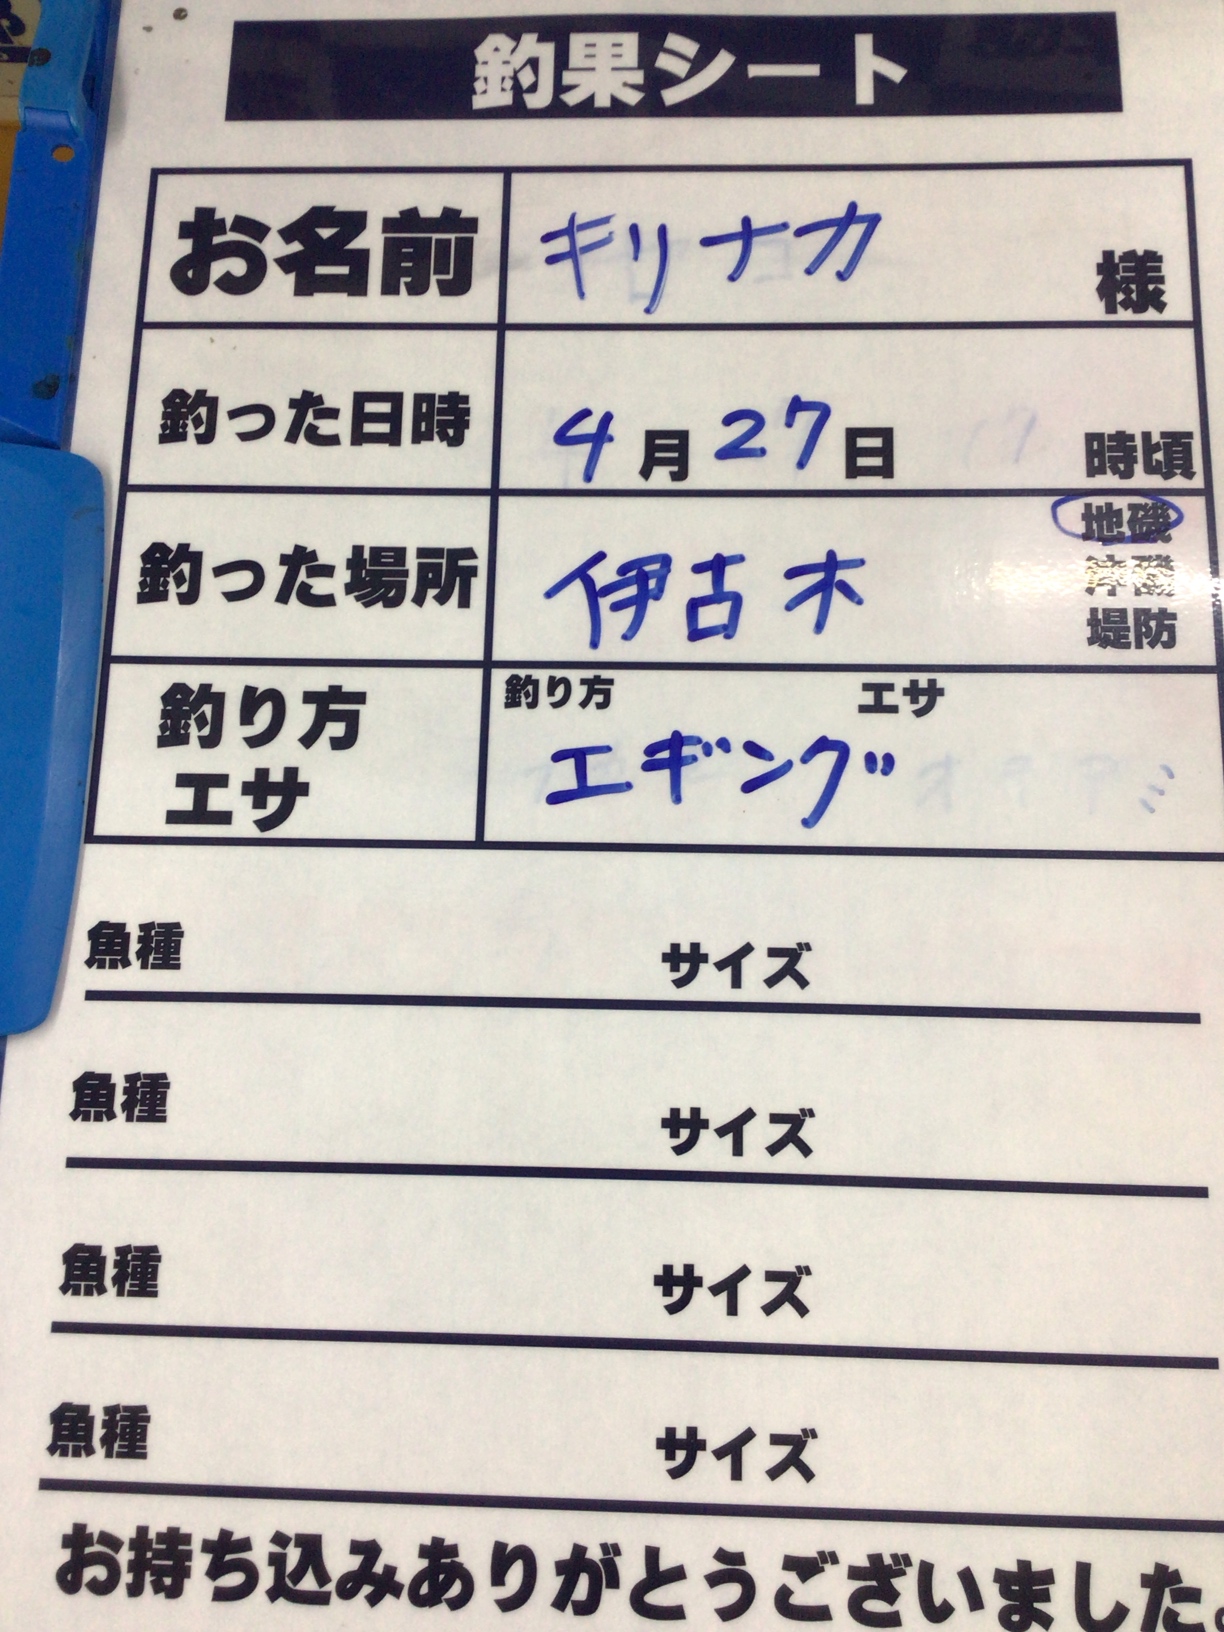 釣果シート
お名前 キリナカ 様
釣った日時 4月27日 時頃
釣った場所 伊古木 地磯
沖磯
堤防
釣り方 エサ 釣り方 エギング エサ
魚種 サイズ
魚種 サイズ
魚種 サイズ
魚種 サイズ
お持ち込みありがとうございました。